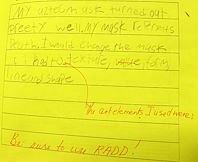 MY aztecm ask turned out
preety well. MY mask
death. I would change the mask
textile, value, form,
line and shape
The art elements I used were:
Be sure to use RADD!